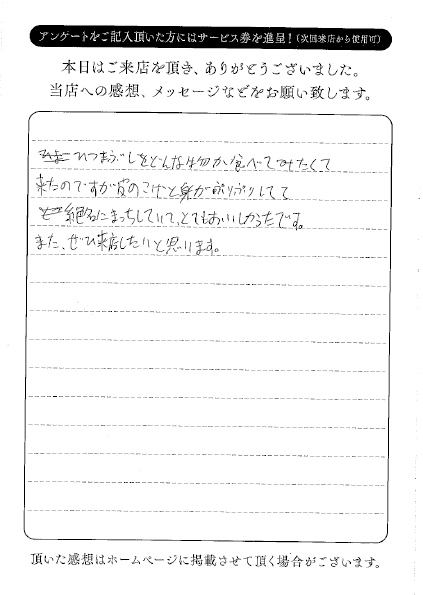 アンケートをご記入頂いた方にはサービス券を進呈！（次回来店から使用可）
本日はご来店を頂き、ありがとうございました。
当店への感想、メッセージなどをお願い致します。
ひつまぶしをどんな物か食べてみたくて
来たのですが皮のこげと身がぷりぷりしてて
絶妙にまっちしていて、とてもおいしかったです。
また、ぜひ来店したいと思います。
頂いた感想はホームページに掲載させて頂く場合がございます。